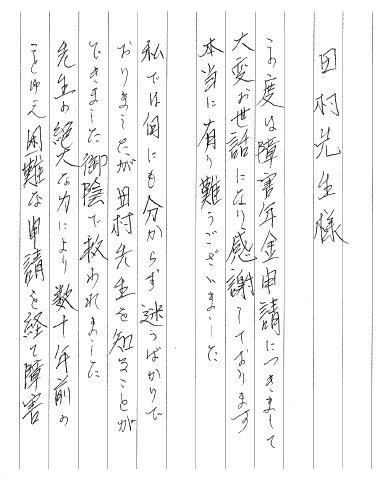 田村先生様
この度は障害年金申請につきまして
大変お世話になり感謝しております
本当に有り難うございました
私では何にも分からず迷うばかりで
おりましたが田村先生を知ることが
できました御陰で救われました
先生の絶大な力により数十年前の
ことゆえ困難な申請を経て障害